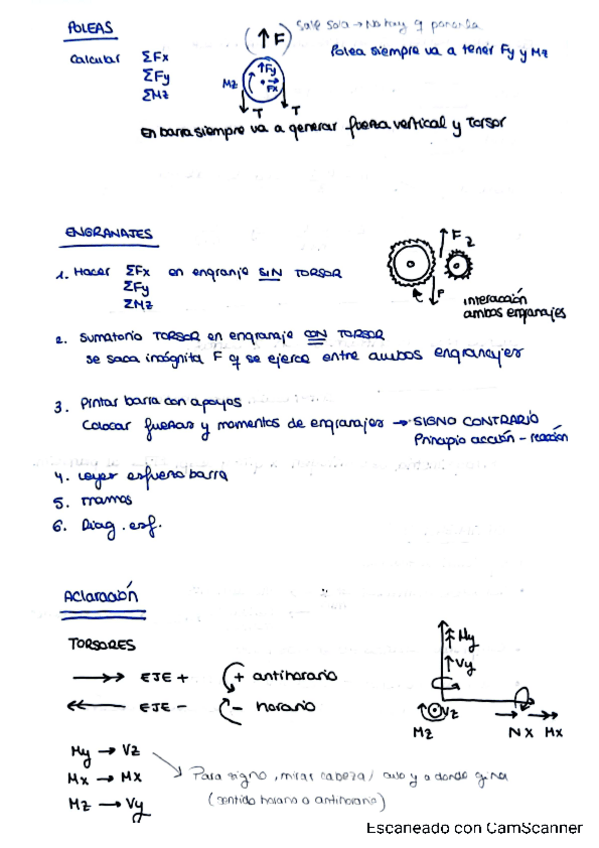 POLEAS
(↑F) Sale sola → No hay q ponerla
Calcular ΣFx
ΣFy
ΣMz
Polea siempre va a tener Fy y Mz
Mz ↑Fy Fx
T T
En barra siempre va a generar fuerza vertical y torsor
ENGRANAJES
1. Hacer ΣFx en engranje SIN TORSOR
ΣFy
ΣMz
F 2
P
interacción
ambos engranajes
2. Sumatorio TORSOR en engranaje CON TORSOR
se saca incógnita F q se ejerce entre ambos engranajes
3. Pintar barra con apoyos
Colocar fuerzas y momentos de engranajes → SIGNO CONTRARIO
Principio acción - reacción
4. Leyes esfuerzo barra
5. Tramos
6. Diag. esf.
Aclaración
TORSORES
EJE + + antihorario
EJE - - horario
My
Vy
Vz
Mz Nx Mx
My → Vz
Mx → Mx
Mz → Vy
Para signo, mirar cabeza/ culo y a donde gira
(sentido horario o antihorario)
Escaneado con CamScanner